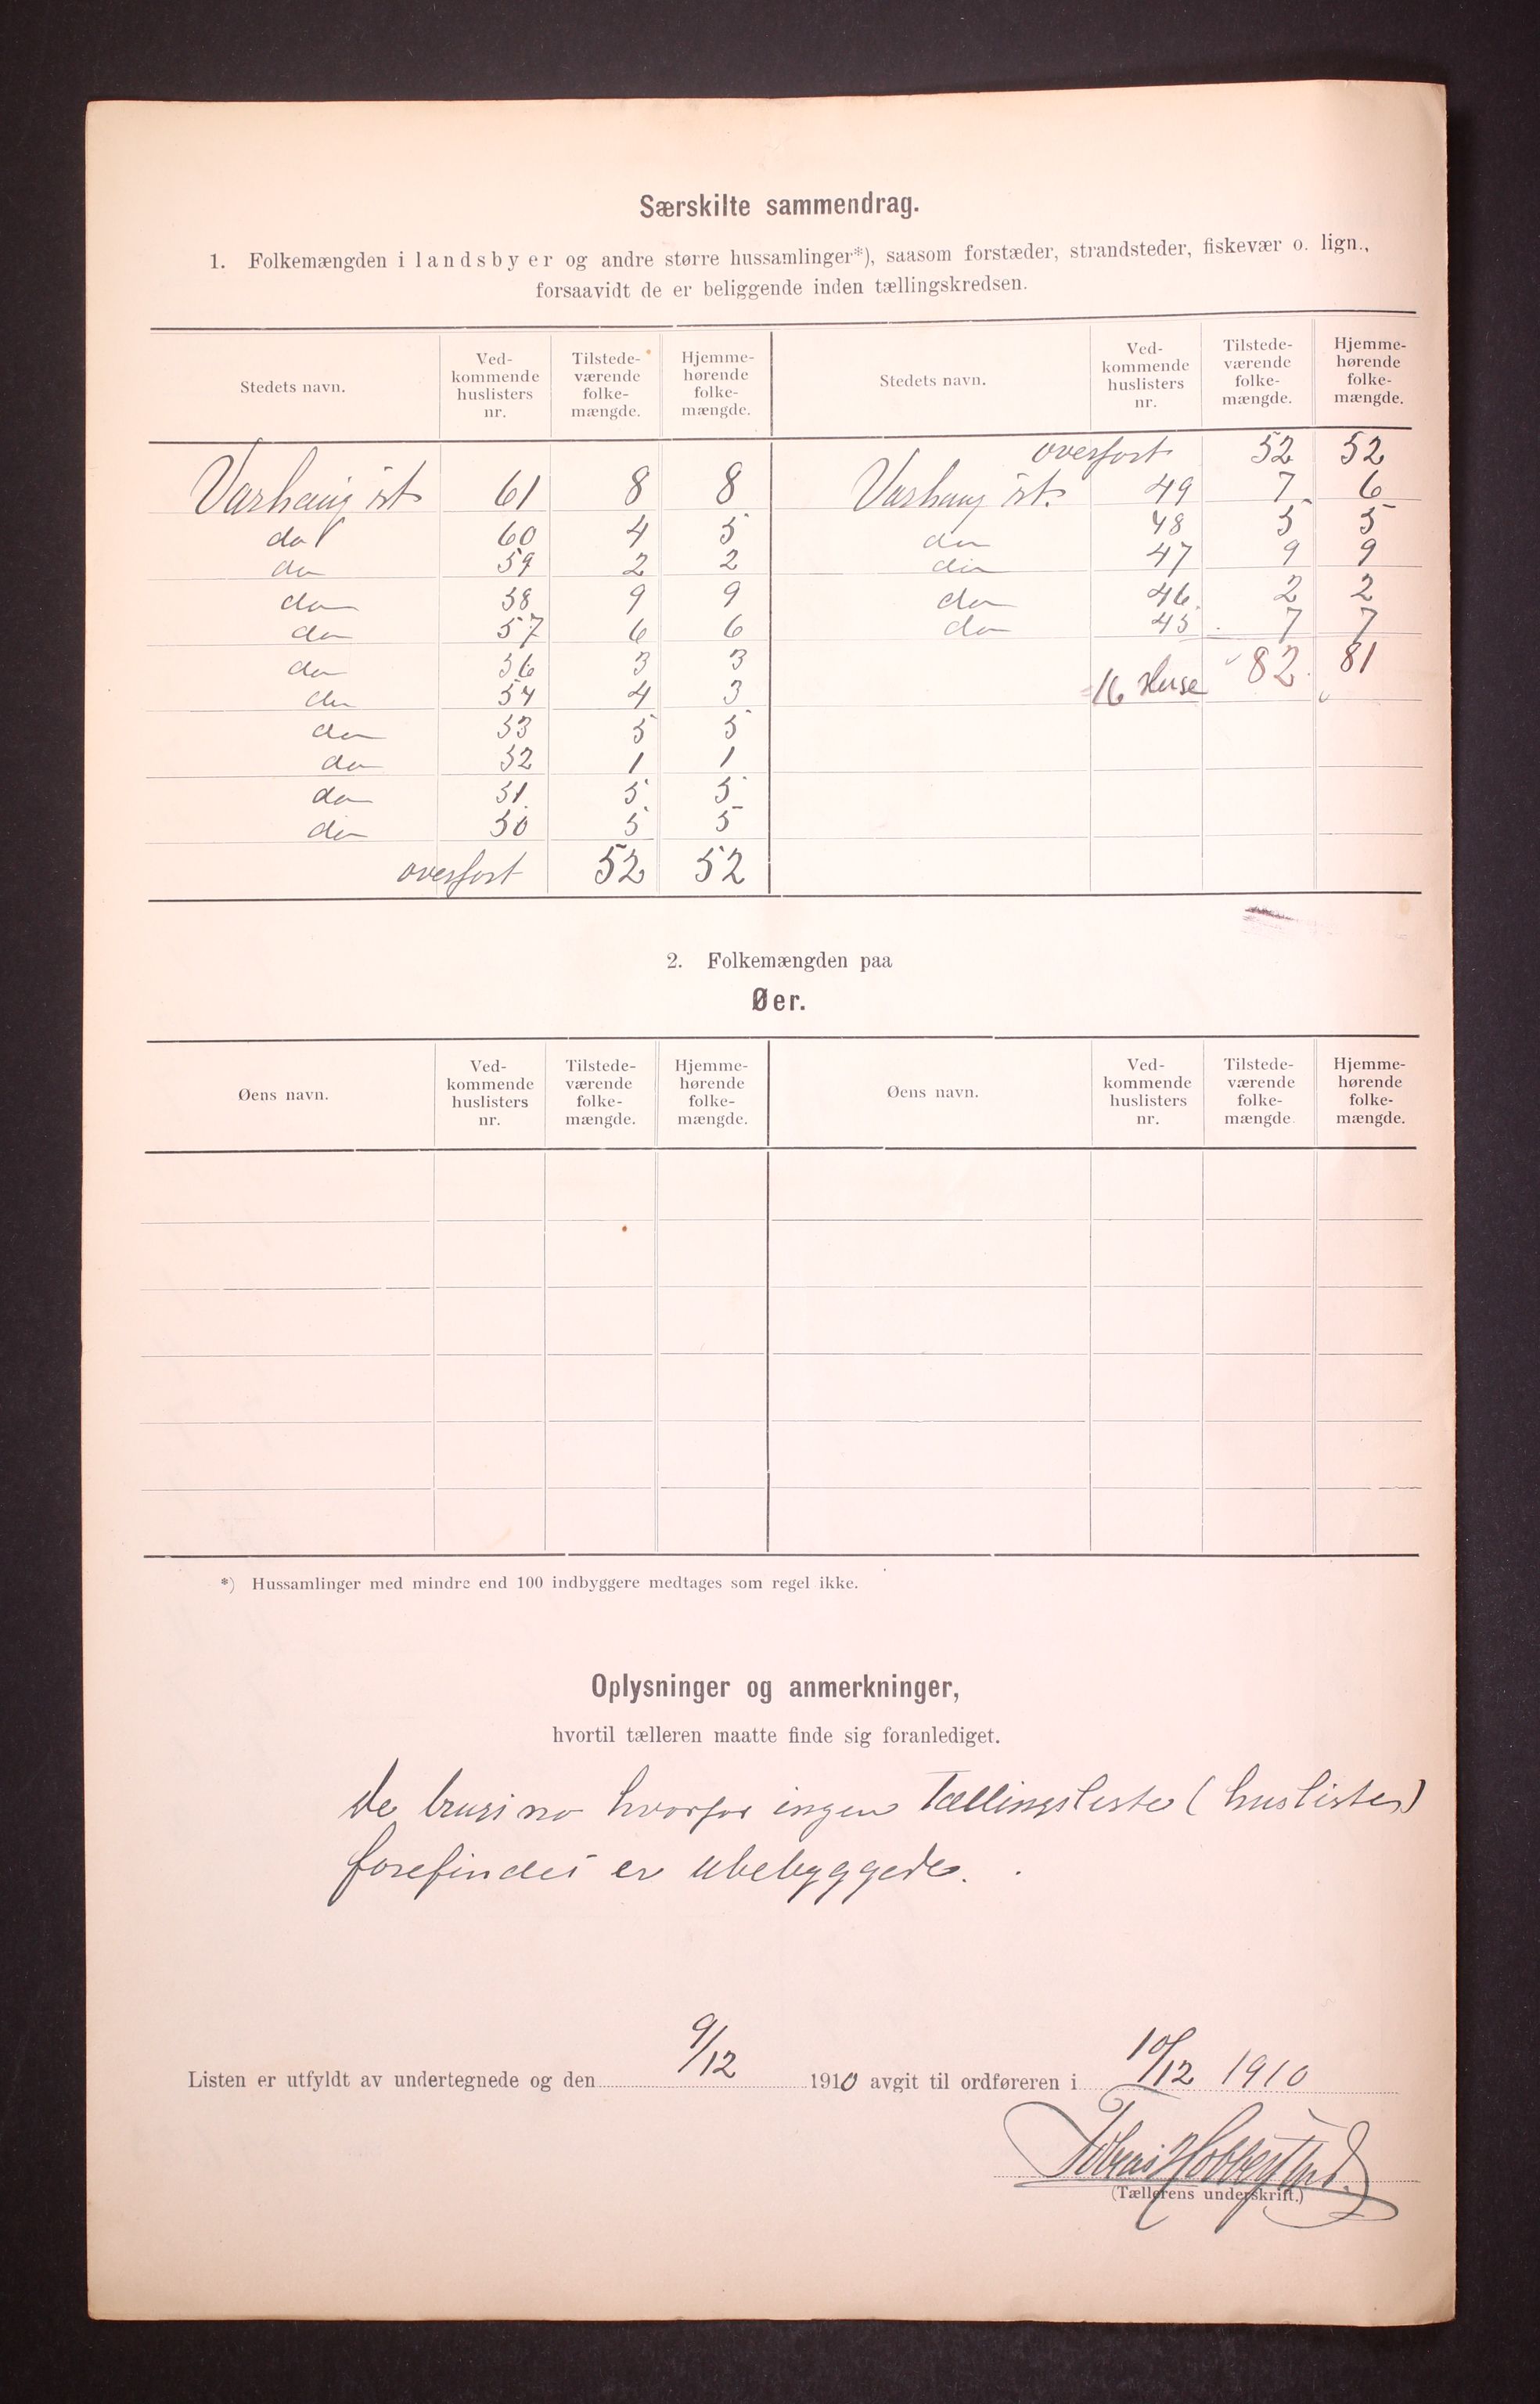 Særskilte sammendrag.
1. Folkemængden i landsbyer og andre større hussamlinger*), saasom forstæder, strandsteder, fiskevær o. lign.,
forsaavidt de er beliggende inden tællingskredsen.
Stedets navn. Ved-kommende huslisters nr. Tilstede-værende folke-mængde. Hjemme-hørende folke-mængde.
Varhaug st 61 8 8
do 60 4 5
do 59 2 2
do 58 9 9
do 57 6 6
do 56 3 3
do 54 4 3
do 53 5 5
do 52 1 1
do 51. 5 5
do 50 5 5
overført 52 52
Stedets navn. Ved-kommende huslisters nr. Tilstede-værende folke-mængde. Hjemme-hørende folke-mængde.
overført 52 52
Varhaug st. 49 7 6
do 48 5 5
do 47 9 9
do 46 2 2
do 45 7 7
16 Huse 82 81
2. Folkemængden paa
Øer.
Øens navn. Ved-kommende huslisters nr. Tilstede-værende folke-mængde. Hjemme-hørende folke-mængde.
Øens navn. Ved-kommende huslisters nr. Tilstede-værende folke-mængde Hjemme-hørende folke-mængde.
*) Hussamlinger med mindre end 100 indbyggere medtages som regel ikke.
Oplysninger og anmerkninger,
hvortil tælleren maatte finde sig foranlediget.
de brugsno hvorfor ingen Tællingsliste (huslister)
forefindes er ubebyggede.
Listen er utfyldt av undertegnede og den 9/12 1910 avgit til ordføreren i 10/12 1910
Tobias
(Tællerens underskrift.)